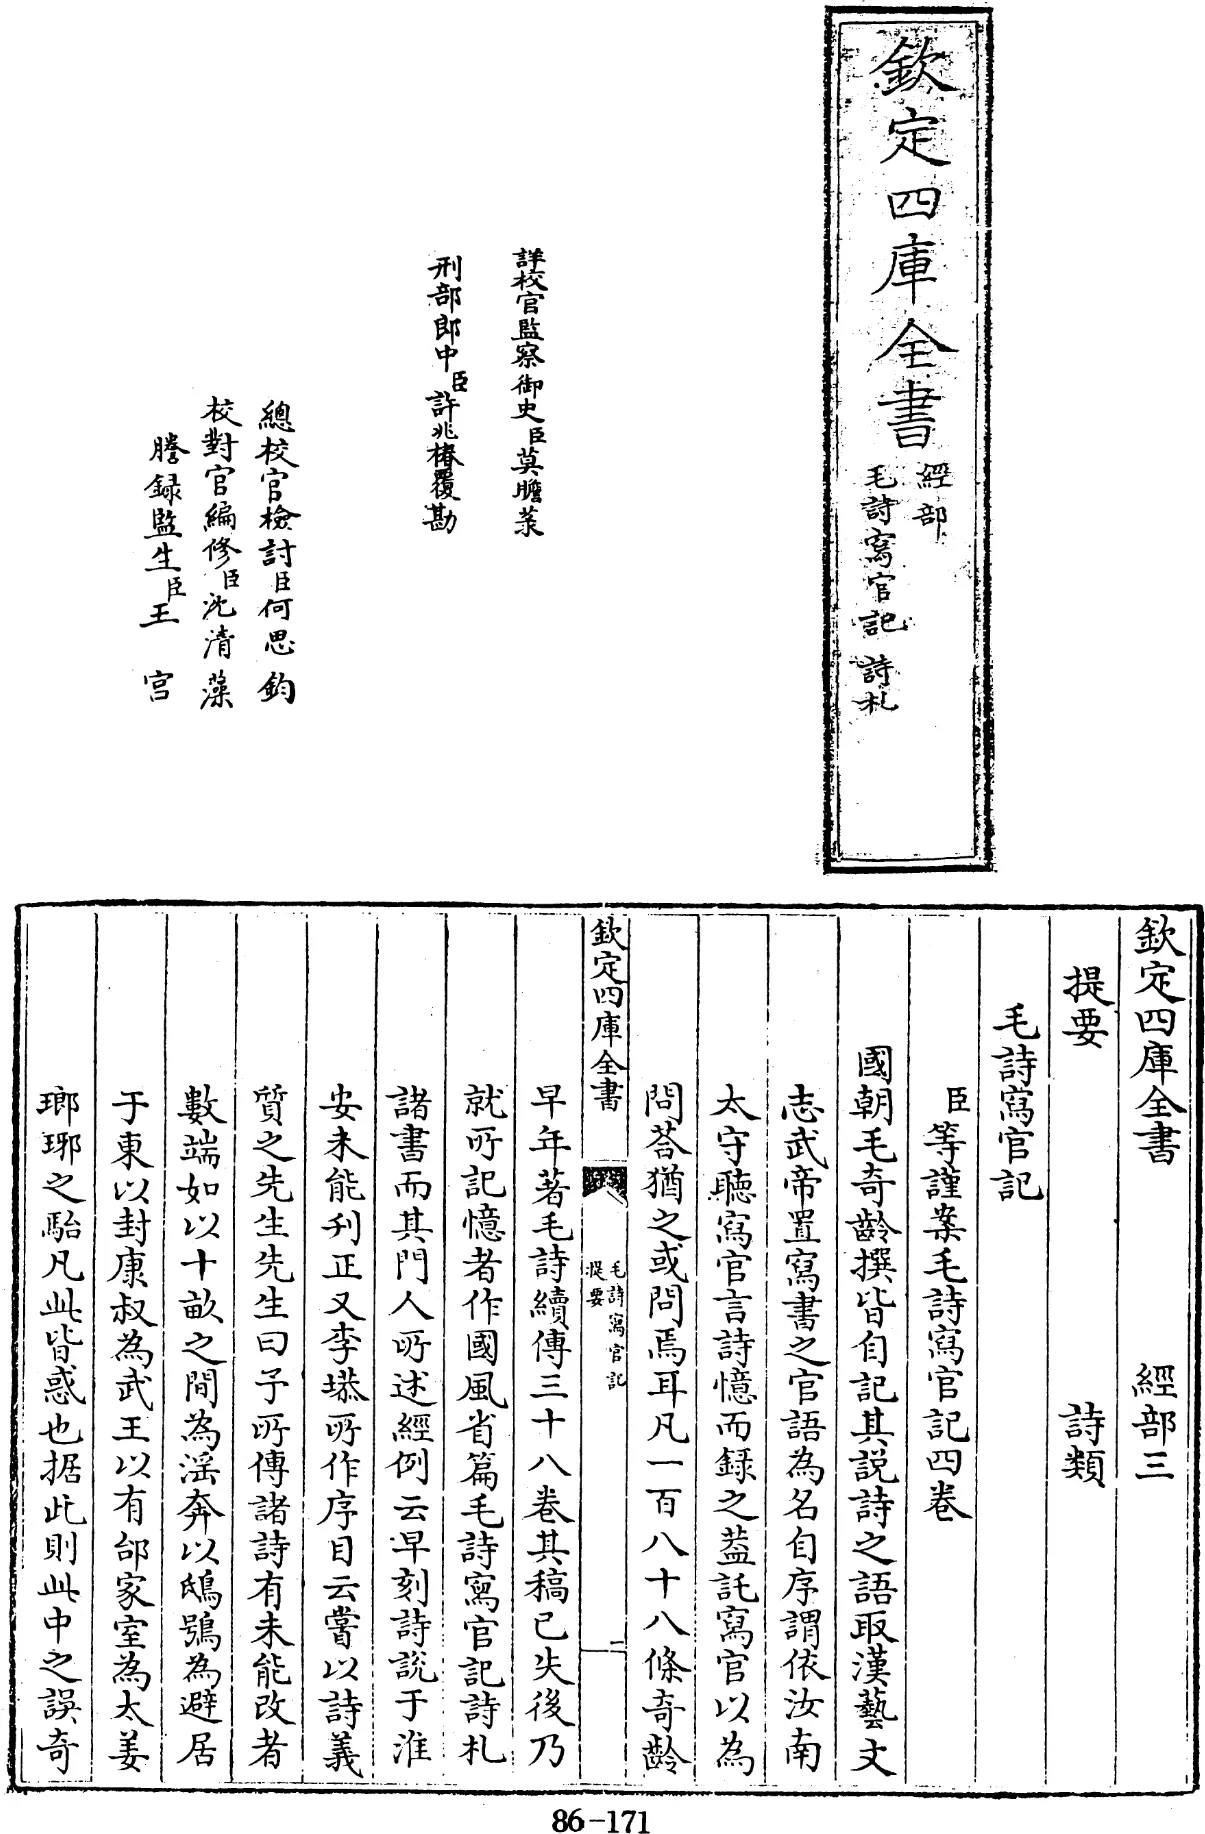 欽定四庫全書
經部
毛詩寫官記 詩札
詳校官監察御史臣莫瞻菉
刑部郎中臣許兆椿覆勘
總校官檢討臣何思鈞
校對官編修臣沈清藻
謄録監生臣王宫
欽定四庫全書 經部三
提要 詩類
毛詩寫官記
臣等謹案毛詩寫官記四卷
國朝毛奇齡撰皆自記其説詩之語取漢藝文
志武帝置寫書之官語為名自序謂依汝南
太守聽寫官言詩憶而録之葢託寫官以為
問荅猶之或問焉耳凡一百八十八條奇齡
欽定四庫全書
毛詩寫官記
提要
二
早年著毛詩續傳三十八卷其稿已失後乃
就所記憶者作國風省篇毛詩寫官記詩札
諸書而其門人所述經例云早刻詩説于淮
安未能刋正又李塨所作序目云嘗以詩義
質之先生先生曰予所傳諸詩有未能改者
數端如以十畝之間為淫奔以鴟鴞為避居
于東以封康叔為武王以有邰家室為太姜
瑯琊之駘凡此皆惑也据此則此中之誤奇
86-171